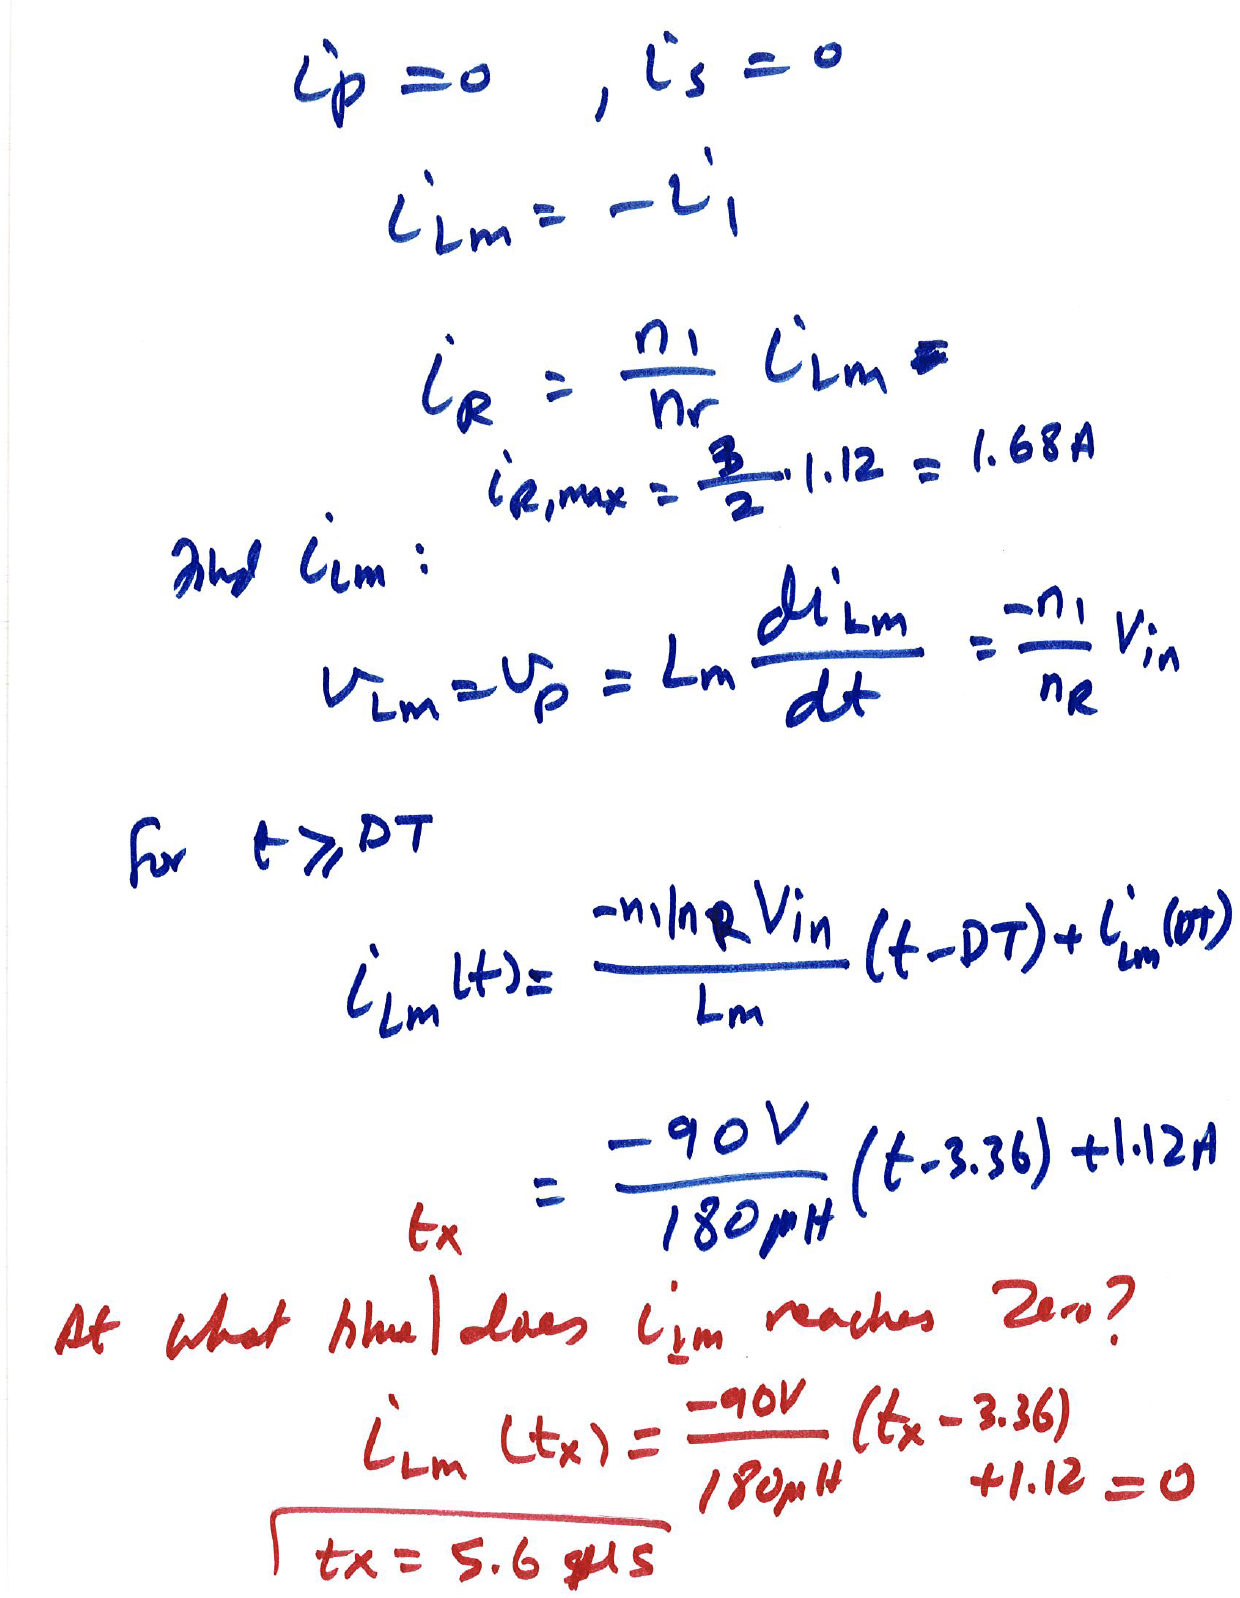 ip = 0 , is = 0
iLm = -i1
iR = n1/nr iLm =
iR,max = 3/2 · 1.12 = 1.68A
Find iLm :
vLm = vp = Lm diLm/dt = -n1/nR Vin
for t ≥ DT
iLm(t) = -n1/nR Vin / Lm (t-DT) + iLm(DT)
= -90V / 180μH (t-3.36) + 1.12A
tx
At what time | does iLm reaches Zero?
iLm (tx) = -90V / 180μH (tx - 3.36)
+1.12 = 0
tx = 5.6 μs